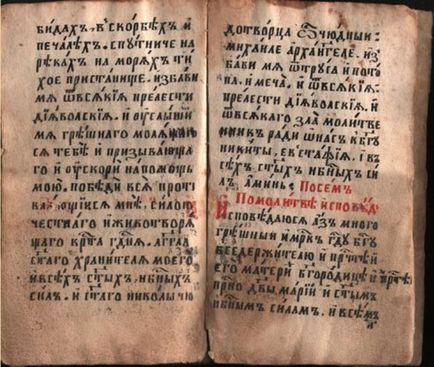 бидахъ, въскорбѣхъ и
печалехъ. спутниче на
рѣкахъ на моряхъ ти
хое пристанище. избави
мя ѿвсякия прелести
дїявольския. и услыши
мя грѣшнаго моляща
ся тебѣ и призывающа
го и ускори напомощь
мою. побѣди вся проти
вляющихся мнѣ, силою
честнаго и животворя
щаго крта гдня. аггла
стаго хранителя моего
и всѣхъ стыхъ, и нбныхъ
силъ. и стаго николы чю
дотворца ѿчюдныи
михаиле архангеле. из
бави мя ѿтруса и пото
па, и меча. и ѿвсякия
прелести дїяволския. и
ѿвсякаго зла. молитве
никъ ради ѿнасъ к бгу
никиты, евстафия, и в
сѣхъ стыхъ и нбныхъ си
лъ. аминь. Посемъ
Помолитвѣ исповѣдь
Исповѣдаюся азъ много
грѣшный имркъ гду бгу
вседержителю и прчтѣй
его матери бгородице и прчтѣй
приснодвы марии и стымъ
нбнымъ силамъ, и всѣмъ